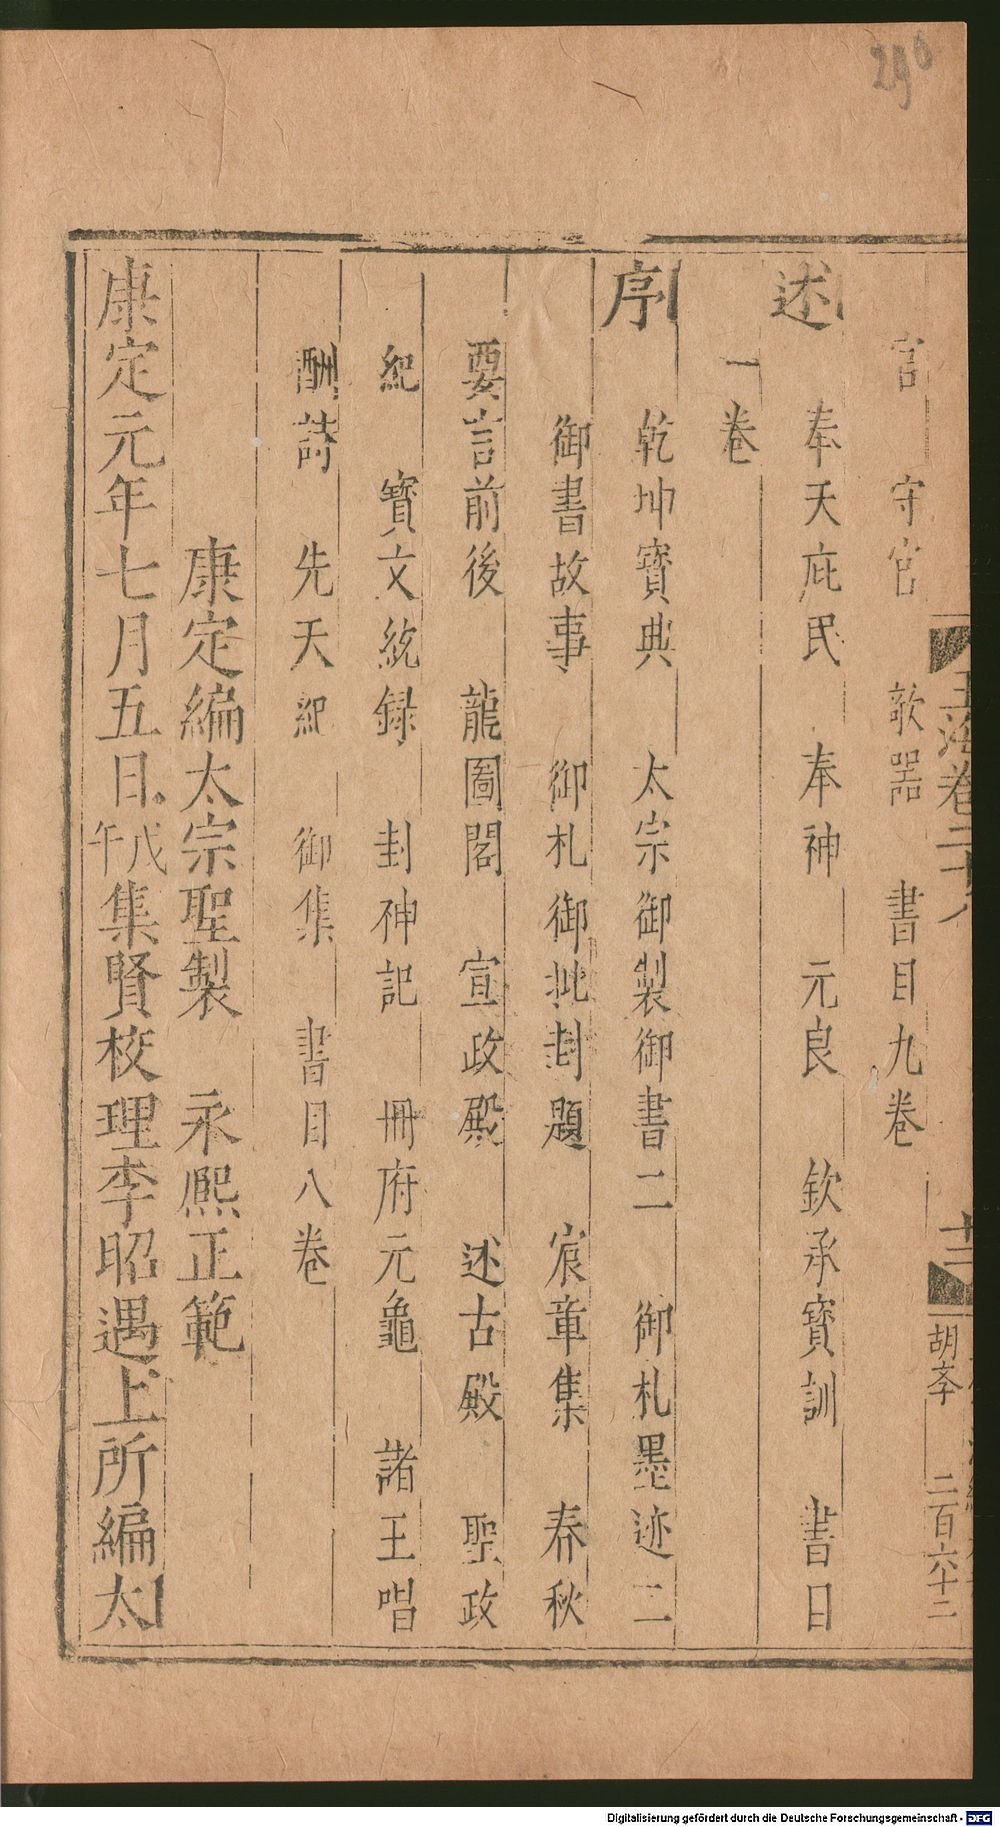 296
宫　守官　欹器　書目九卷
述　奉天庇民　奉神　元良　欽承寳訓　書目
一卷
序　乾坤寳典　太宗御製御書二　御札墨迹二
御書故事　御札御批封題　宸章集　春秋
要言前後　龍圖閣　宣政殿　述古殿　聖政
紀　寳文統録　封神記　冊府元龜　諸王唱
酬詩　先天紀　御集　書目八卷
康定編太宗聖製　永熈正範
康定元年七月五日戊午集賢校理李昭遇上所編太
玉海卷二十八
十三
胡李
二百六十二
Digitalisierung gefördert durch die Deutsche Forschungsgemeinschaft - DFG